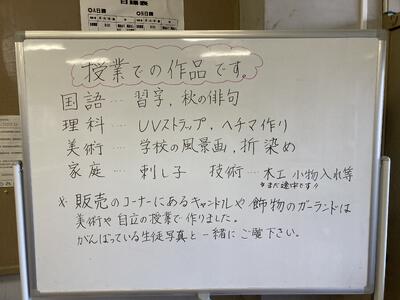 授業での作品です。
国語‥‥習字、秋の俳句
理科‥‥UVストラップ、ヘチマ作り
美術‥‥学校の風景画、折染め
家庭‥‥刺し子 技術‥‥木工 小物入れ等
まだ途中です!!
※販売のコーナーにあるキャンドルや飾物のガーランドは
美術や自立の授業で作りました。
がんばっている生徒写真と一緒にご覧下さい。